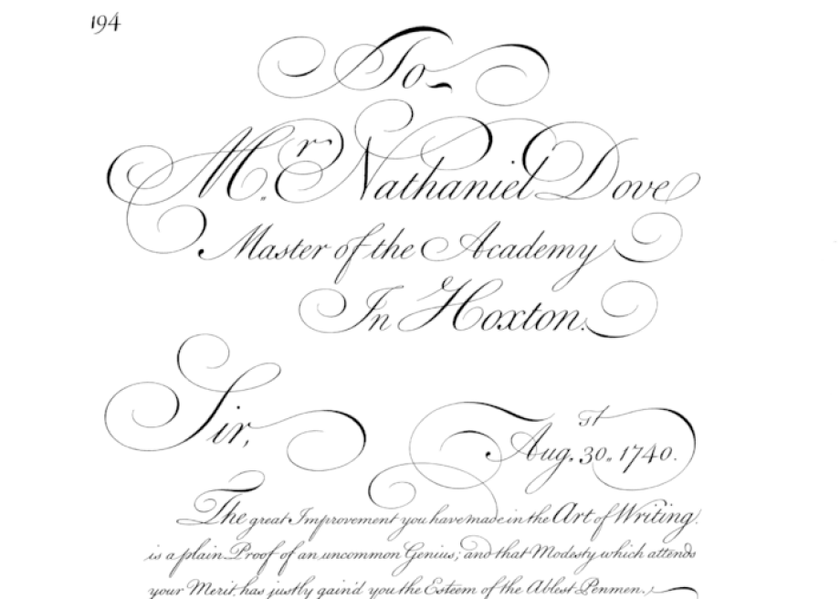 194
To
Mr. Nathaniel Dove
Master of the Academy
In Hoxton.
Sir,
Augst. 30. 1740.
The great Improvement you have made in the Art of Writing,
is a plain Proof of an uncommon Genius; and that Modesty which attends
your Merit, has justly gain'd you the Esteem of the Ablest Penmen.